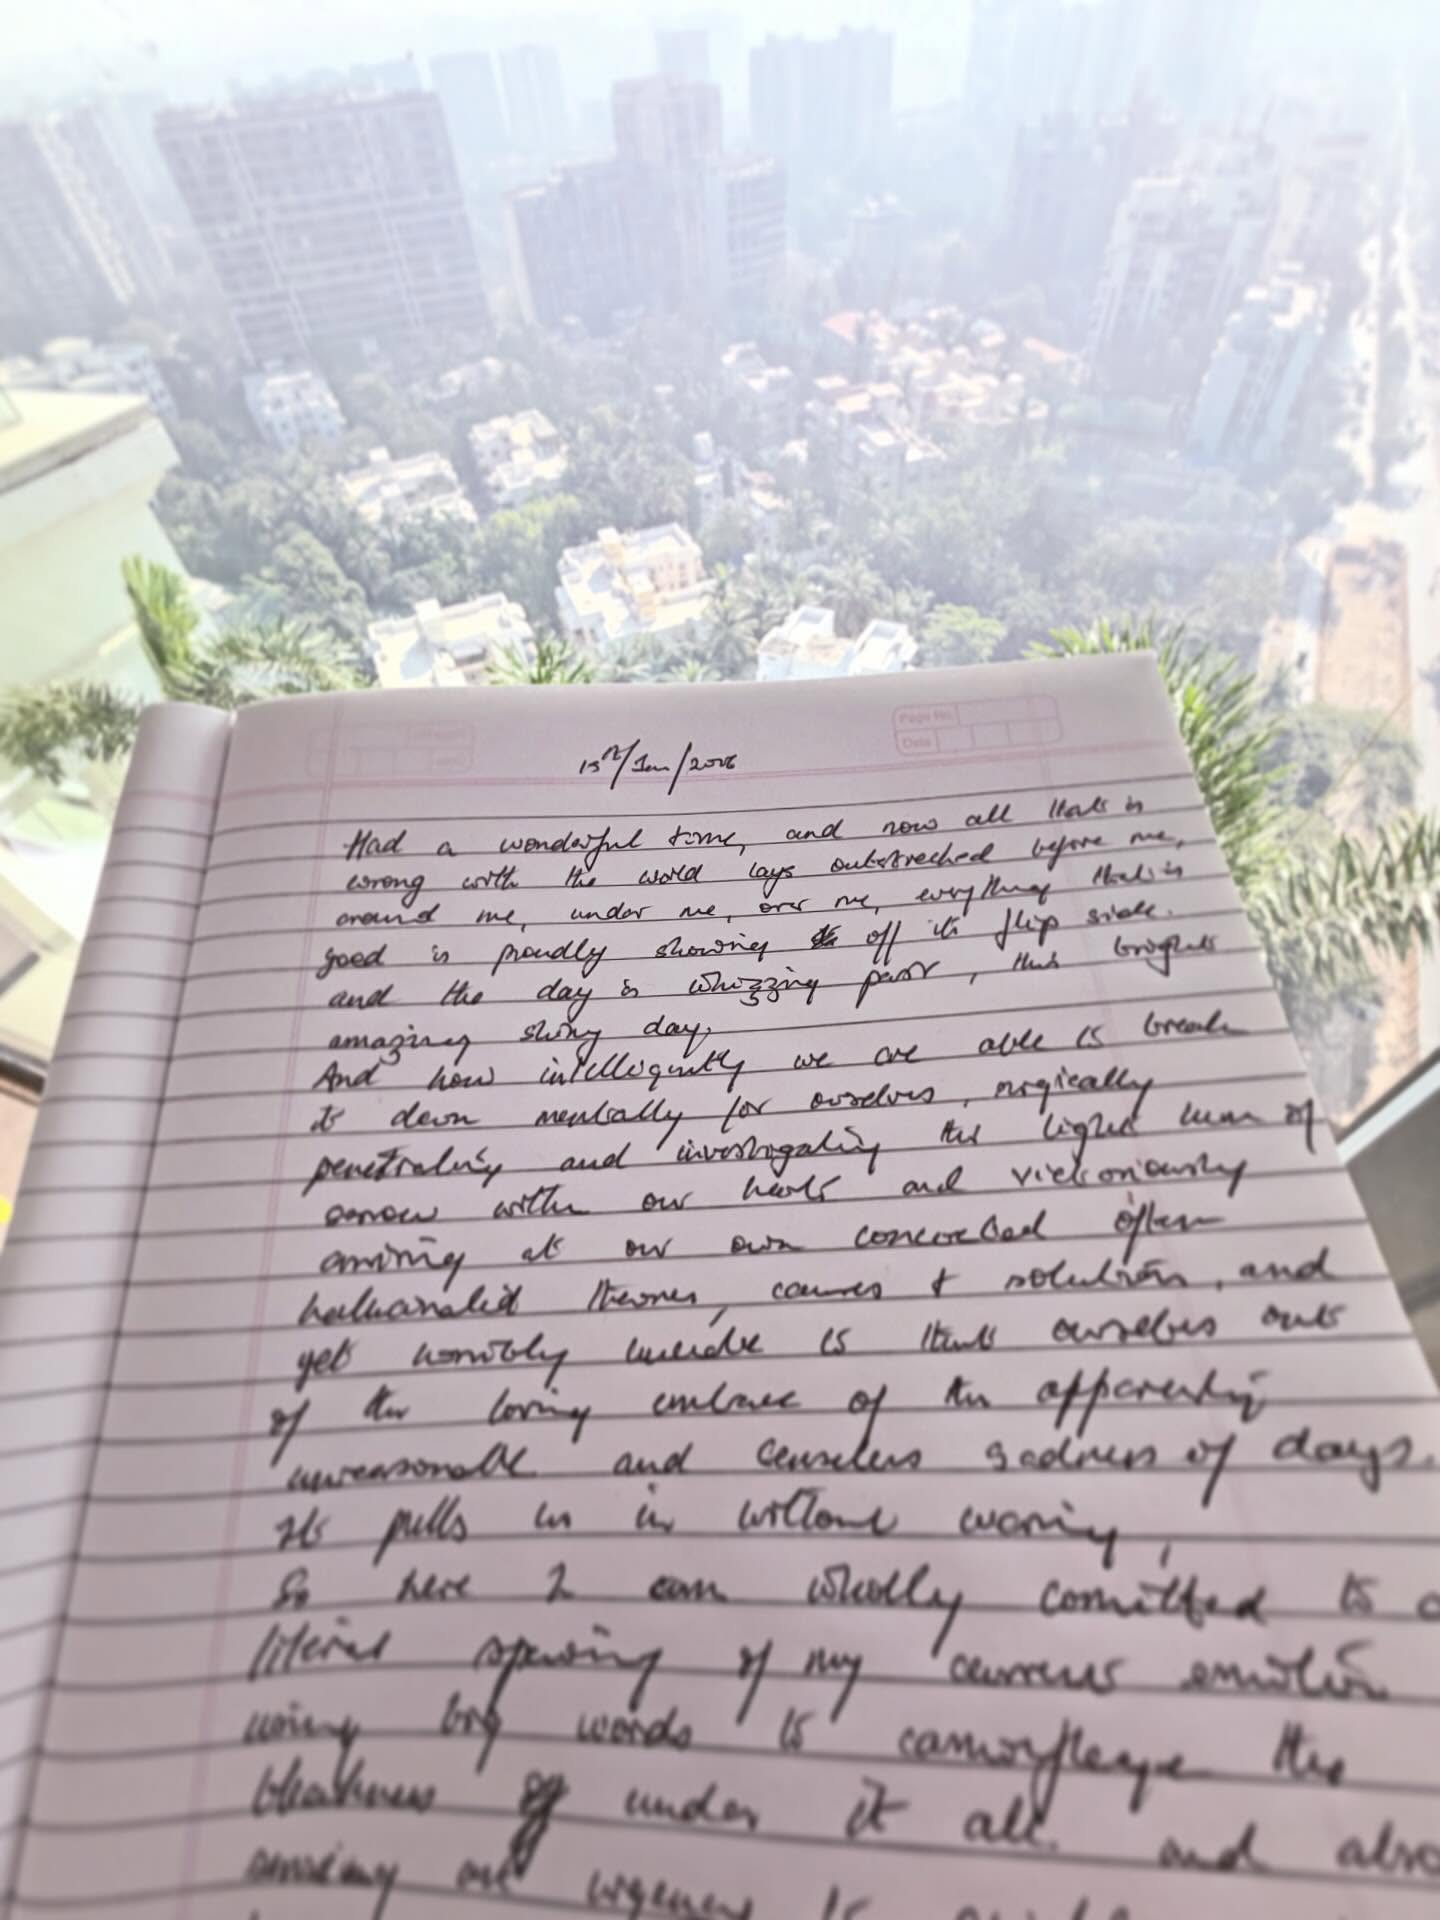 Page No.
Date
15th/Jan/2026
Had a wonderful time, and now all that is
wrong with the world lays outstreched before me,
around me, under me, over me, everything that is
good is proudly showing off its flip side.
and the day is whizzing past, this bright
amazing shiny day.
And how intelligently we are able to break
it down mentally for ourselves, surgically
penetrating and investigating the of
sorrow within our hearts and victoriously
arriving at our own concocted often
hallucinated theories, causes & solutions, and
yet horribly unable to think ourselves out
of the loving embrace of the apparently
unreasonable and senseless sadness of days.
It pulls us in without warning,
So here I am wholly comitted to a
literal spewing of my current emotion
using big words to camouflage the
bleakness under it all. and also
urgency to